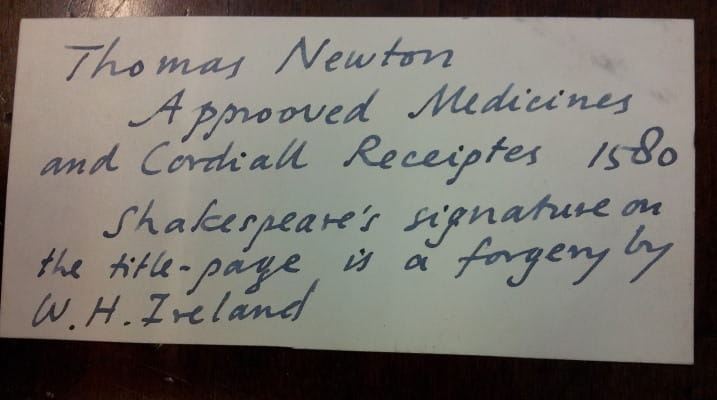 Thomas Newton
Approoved Medicines
and Cordiall Receiptes 1580
Shakespeare's signature on
the title-page is a forgery by
W.H. Ireland